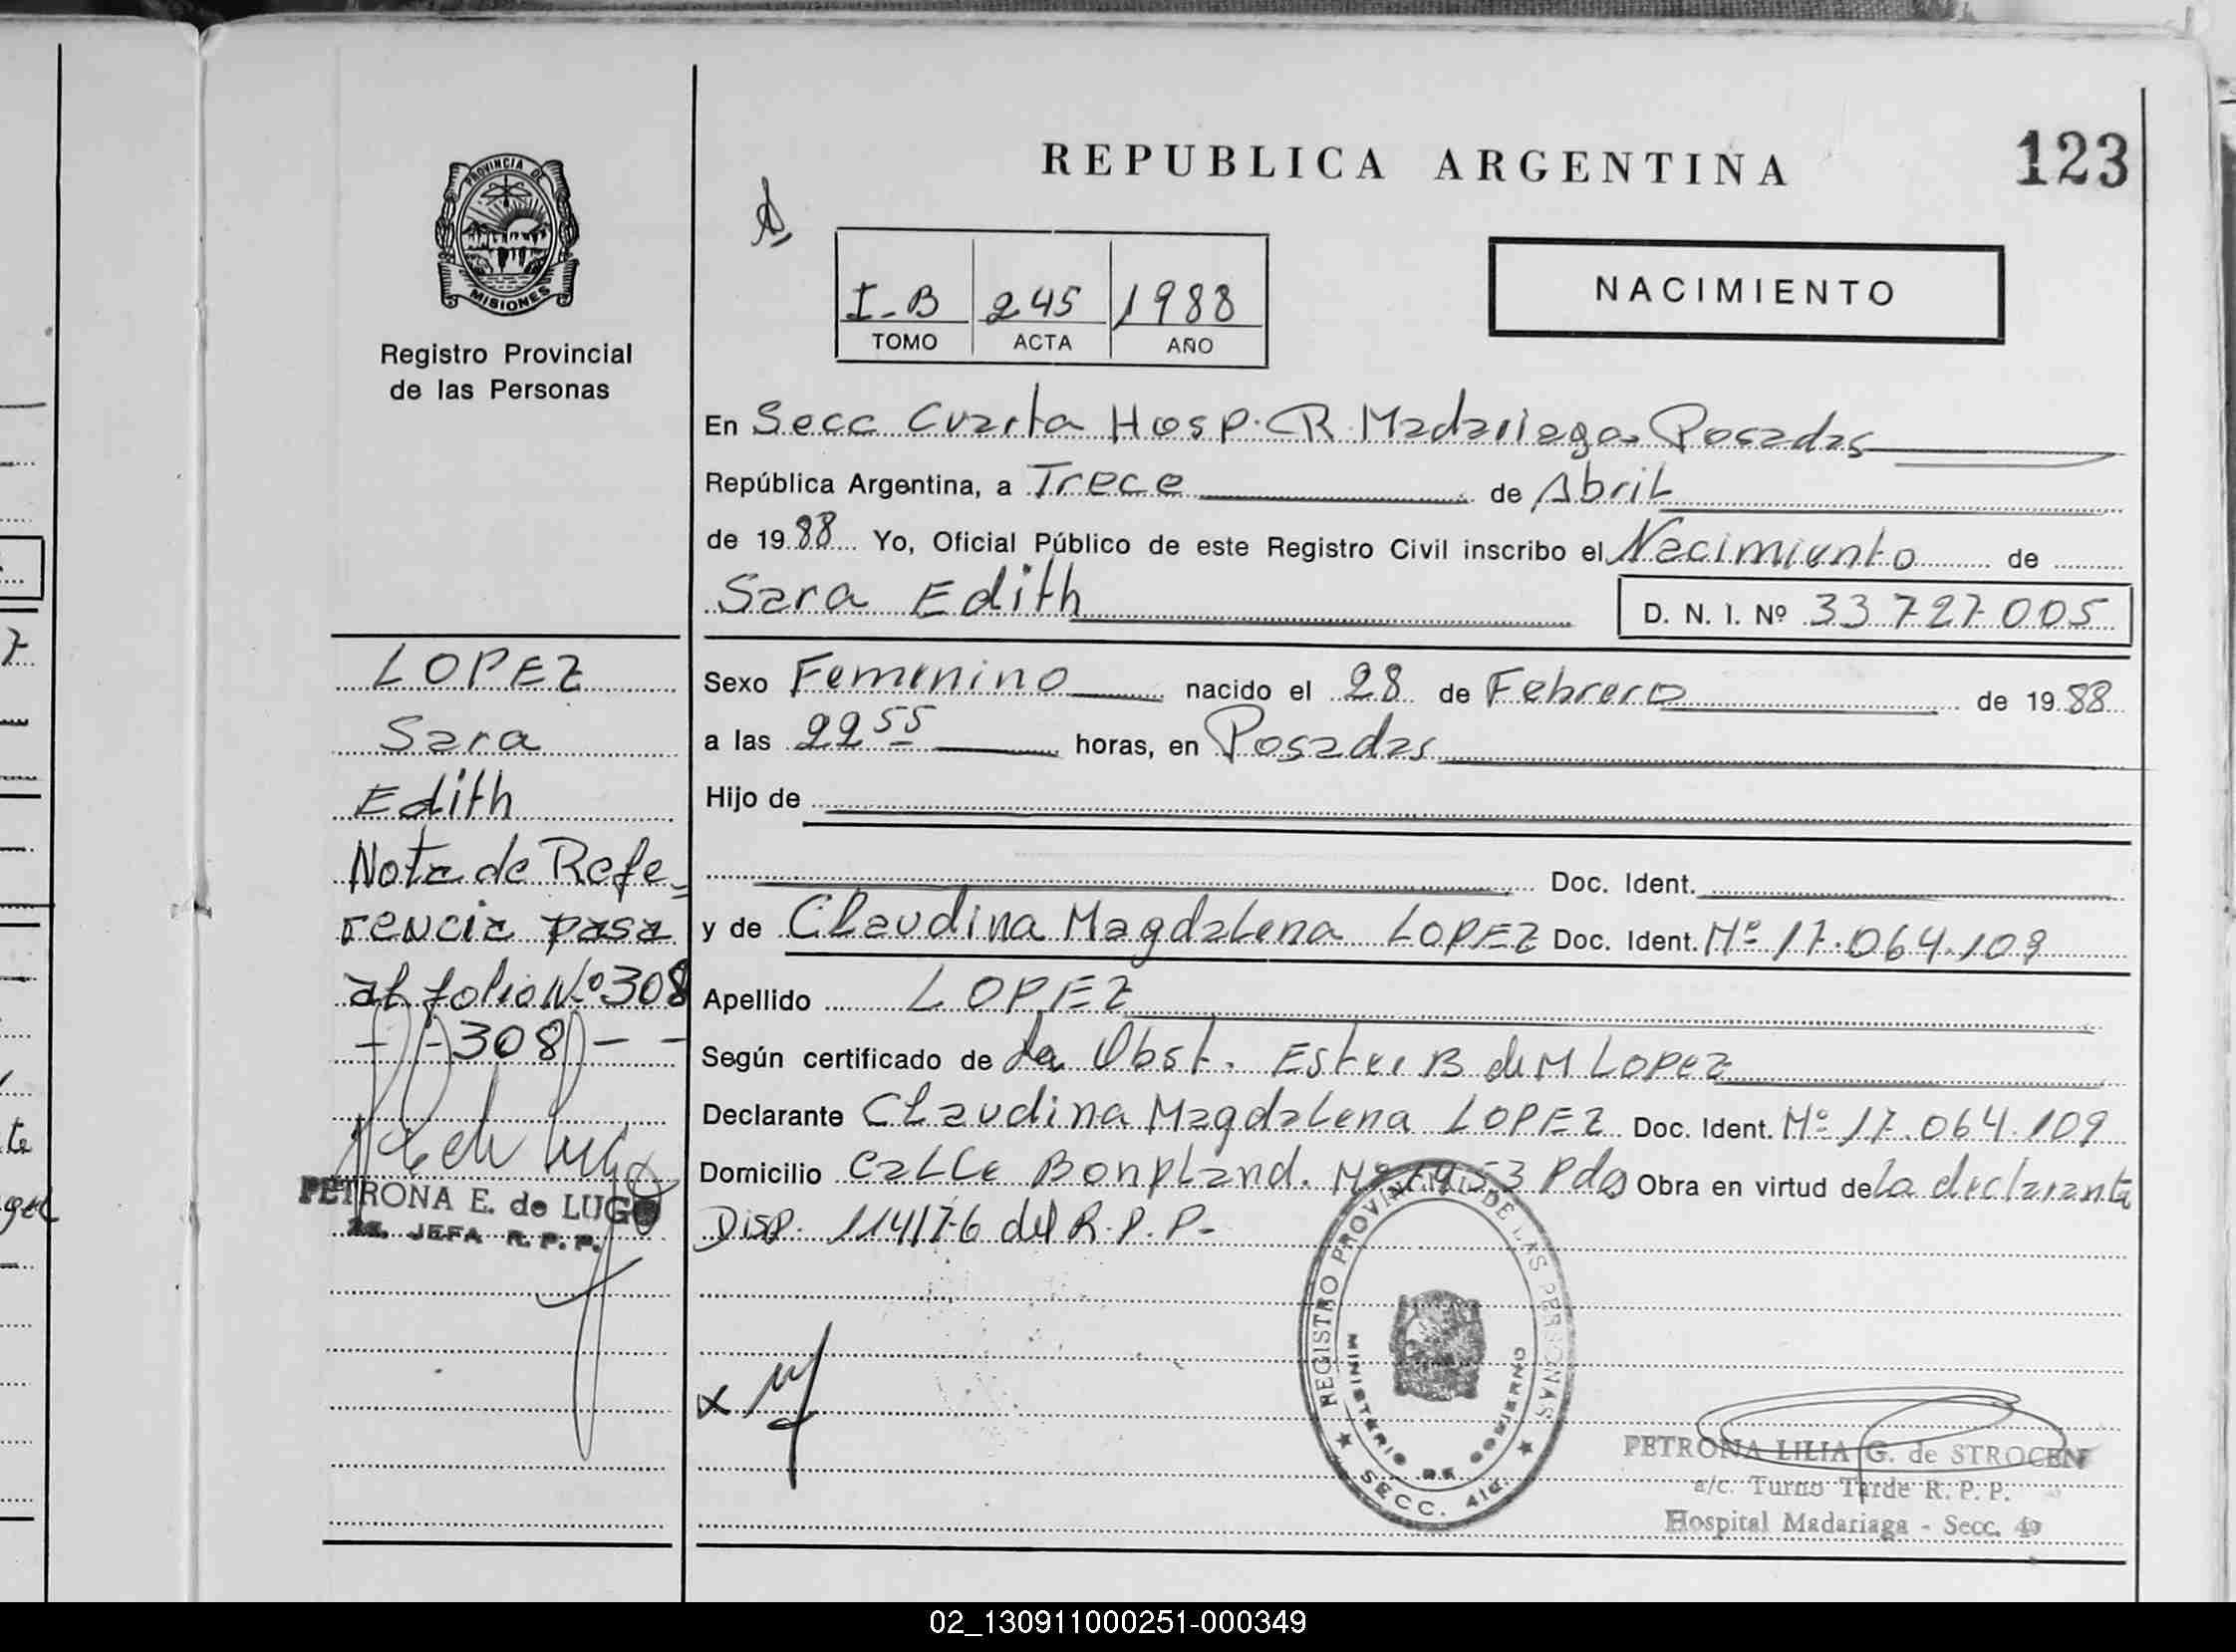 REPUBLICA ARGENTINA
123
PROVINCIA DE
MISIONES
Registro Provincial
de las Personas
I-B 245 1988
TOMO ACTA AÑO
NACIMIENTO
En Secc Cuarta Hosp. R. Madariaga Posadas
República Argentina, a Trece de Abril
de 1988 Yo, Oficial Público de este Registro Civil inscribo el Nacimiento de
Sara Edith
D. N. I. Nº 33727005
LOPEZ
Sara
Edith
Nota de Refe-
rencia pasa
al folio Nº 308
- - 308 - -
PETRONA E. de LUGO
JEFA R. P. P.
Sexo Femenino nacido el 28 de Febrero de 1988
a las 22 55 horas, en Posadas
Hijo de
Doc. Ident.
y de Claudina Magdalena LOPEZ Doc. Ident. Nº 17.064.109
Apellido LOPEZ
Según certificado de La Obst. Ester B de M Lopez
Declarante Claudina Magdalena LOPEZ Doc. Ident. Nº 17.064.109
Domicilio Calle Bonpland. Nº 1453 Pdas Obra en virtud de La declarante
Disp. 114/76 del R.P.P.-
REGISTRO PROVINCIAL DE LAS PERSONAS
MINISTERIO DE GOBIERNO
SECC. 4ta.
x
PETRONA LILIA G. de STROCEN
a/c. Turno Tarde R. P. P.
Hospital Madariaga - Secc. 4º
02_130911000251-000349